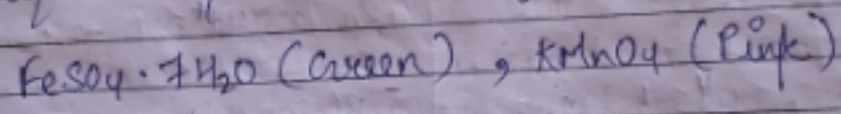 FeSO4 · 7H2O (Green) , KMnO4 (Pink)